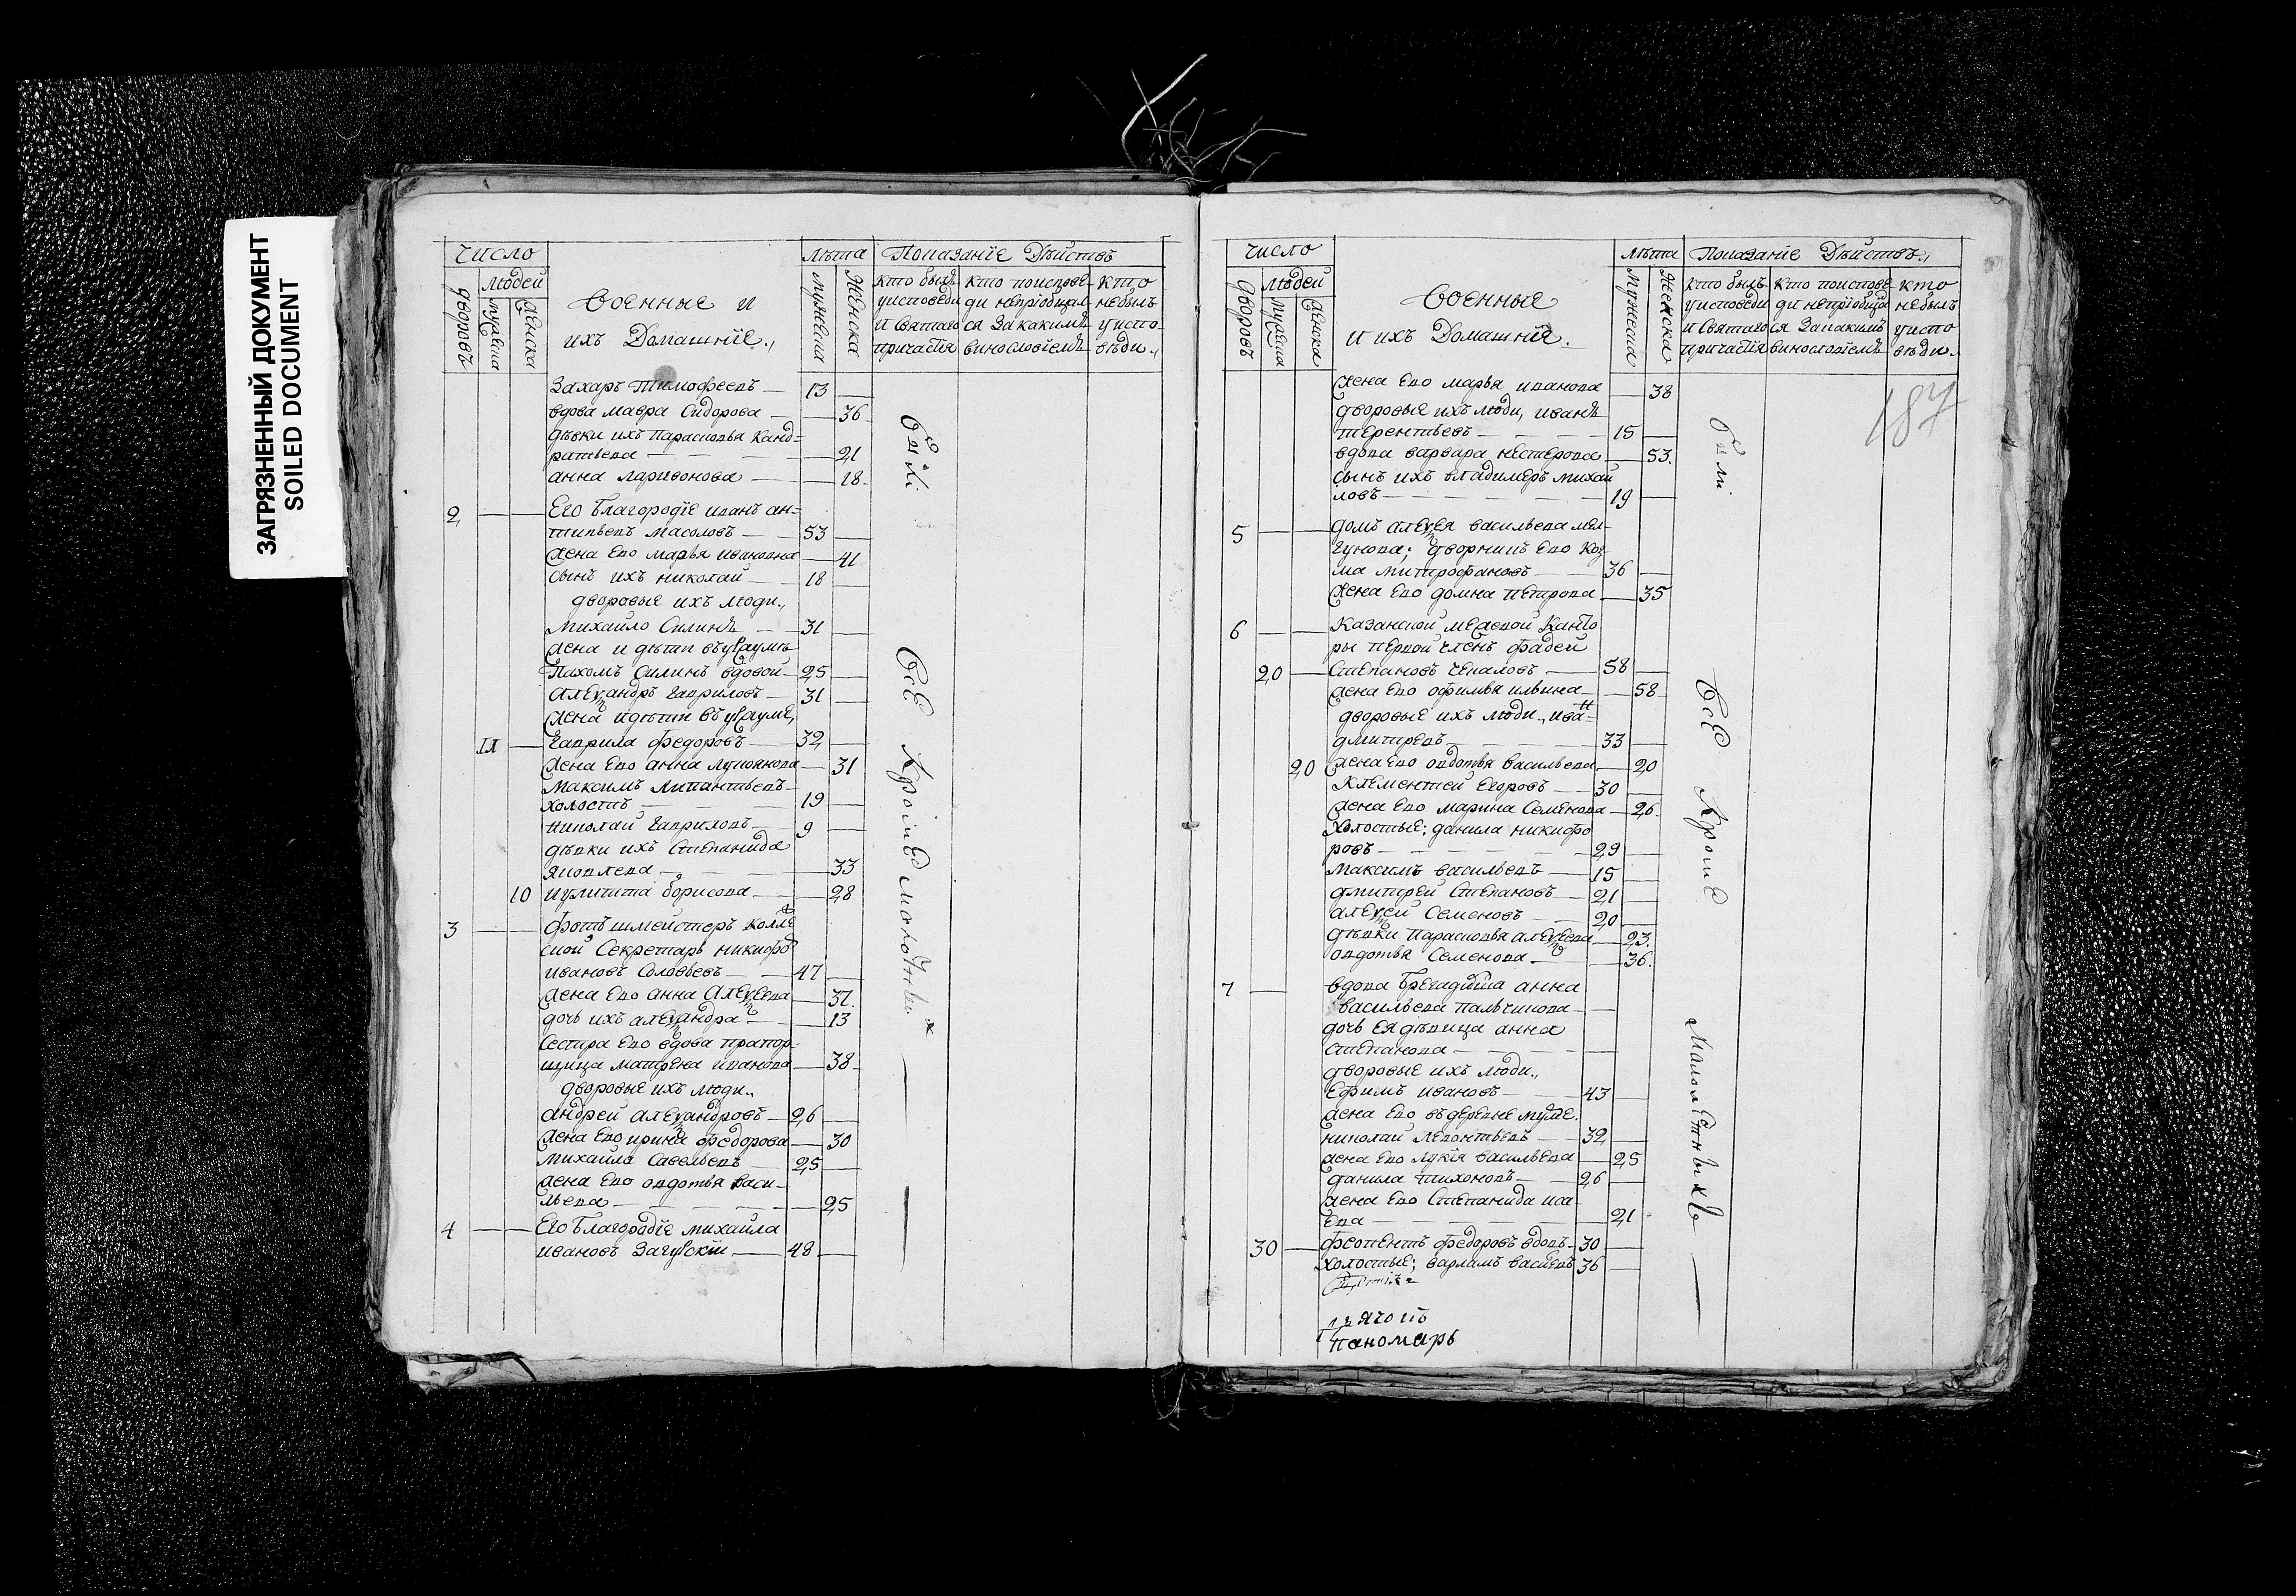 ЗАГРЯЗНЕННЫЙ ДОКУМЕНТ
SOILED DOCUMENT
Число
Лѣта
Показанїе Дѣйствъ
дворовъ
людей
мужска
женска
Военные и
ихъ Домашнїе.,
мужеска
женска
кто былъ
уисповеди
и Святаго
причастїя
кто поиспове-
ди непрїобщал-
ся Закакимъ
винословїемъ
кто
небылъ
уиспо-
вѣди.,
Захаръ Тимофеевъ — 13
вдова мавра Сидорова — 36
дѣвки ихъ Парасковья Канд=
ратьева — 21
анна ларивонова — 18
2 Его Благородїе иванъ ан=
типьевъ Масоловъ — 53
жена Ево марья ивановна — 41
сынъ ихъ николай — 18
дворовые ихъ люди.,
Михайло Силинъ — 31
жена и дѣти въ
Пахомъ Силинъ вдовой — 25
алеѯандръ гавриловъ — 31
жена идѣти въ
гаврила федоровъ — 32
жена Ево анна лукоянова — 31
Максимъ
холостъ — 19
николай гавриловъ — 9
дѣвки ихъ Степанида
Яковлева — 33
10 иулитта борисова — 28
3 колле
ской Секретарь никифоръ
ивановъ Соловьевъ — 47
жена Ево анна Алеѯеева — 37
дочь ихъ алеѯандра — 13
Сестра Ево вдова прапор-
щица матрена иванова — 38
дворовые ихъ люди.,
андрей алеѯандровъ — 26
жена Ево ирина федорова — 30
Михаила Савельевъ — 25
жена Ево овдотья васи-
льева — 25
4 Его Благородїе михаила
ивановъ — 48
были
все кромѣ малолетныхъ
Число
Лѣта
Показанїе Дѣйствъ.,
дворовъ
людей
мужска
женска
Военные
и ихъ Домашнїя.
мужеска
женска
кто былъ
уисповеди
и Святаго
причастїя
кто поиспове-
ди непрїобща
ся Закакимъ
винословїемъ
кто
небылъ
уиспо
вѣди.
187
жена Ево марья иванова — 38
дворовые ихъ люди, иванъ
терентьевъ — 15
вдова варвара нестерова — 53.
сынъ ихъ владимеръ михай
ловъ — 19
5 домъ алеѯея васильева мел-
гунова; дворникъ Ево Коз-
ма митрофановъ — 36
жена Ево домна петрова — 35
6 Казанской межевой Канто
ры первой членъ фадей
20 Степановъ чекаловъ — 58
жена Ево офимья ильина — 58
дворовые ихъ люди., иванъ
дмитревъ — 33
20 жена Ево овдотья васильева — 20
Клементей Егоровъ — 30
жена Ево марина Семенова — 26.
холостые; данила никифо
ровъ — 29
максимъ васильевъ — 15
дмитрей Степановъ — 21
алеѯей Семеновъ — 20
дѣвки парасковья алеѯеева — 23.
овдотья Семенова — 36.
7 вдова анна
васильева пальчикова
дочь Ея дѣвица анна
степанова
дворовые ихъ люди.,
Ефимъ ивановъ — 43
жена Ево въ деревне
николай леонтьевъ — 32
жена Ево лукїя васильева — 25
данила тихоновъ — 26
жена Ево Степанида иса
Ева — 21
30 феопентъ федоровъ вдовъ — 30
холостые; варламъ васильевъ 36
дьячокъ
паномарь
были
все кроме
малолетныхъ